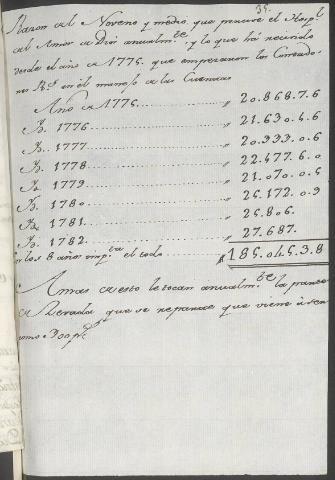 35.
Razon del Noveno y medio que percive el Hospl.
del Amor de Dios anualmte. y lo que há recivido
desde el año de 1775. que empezaron los Contado-
res Rs. en el manejo de las Cuentas
Año de 1775 ........ 20.868.7.6
Yd. 1776 ........ 21.630.4.6
Yd. 1777 ........ 20.933.0.6
Yd. 1778 ........ 22.477.6.0
Yd. 1779 ........ 21.070.0.5
Yd. 1780 ........ 25.172.0.9
Yd. 1781 ........ 25.806.
Yd. 1782 ........ 27.687.
en los 8 años impta. el todo ........ 185.045.3.8
Amas de esto le tocan anualmte. la parte
de Xerada que se reparte que viene á ser
como 300 ps.